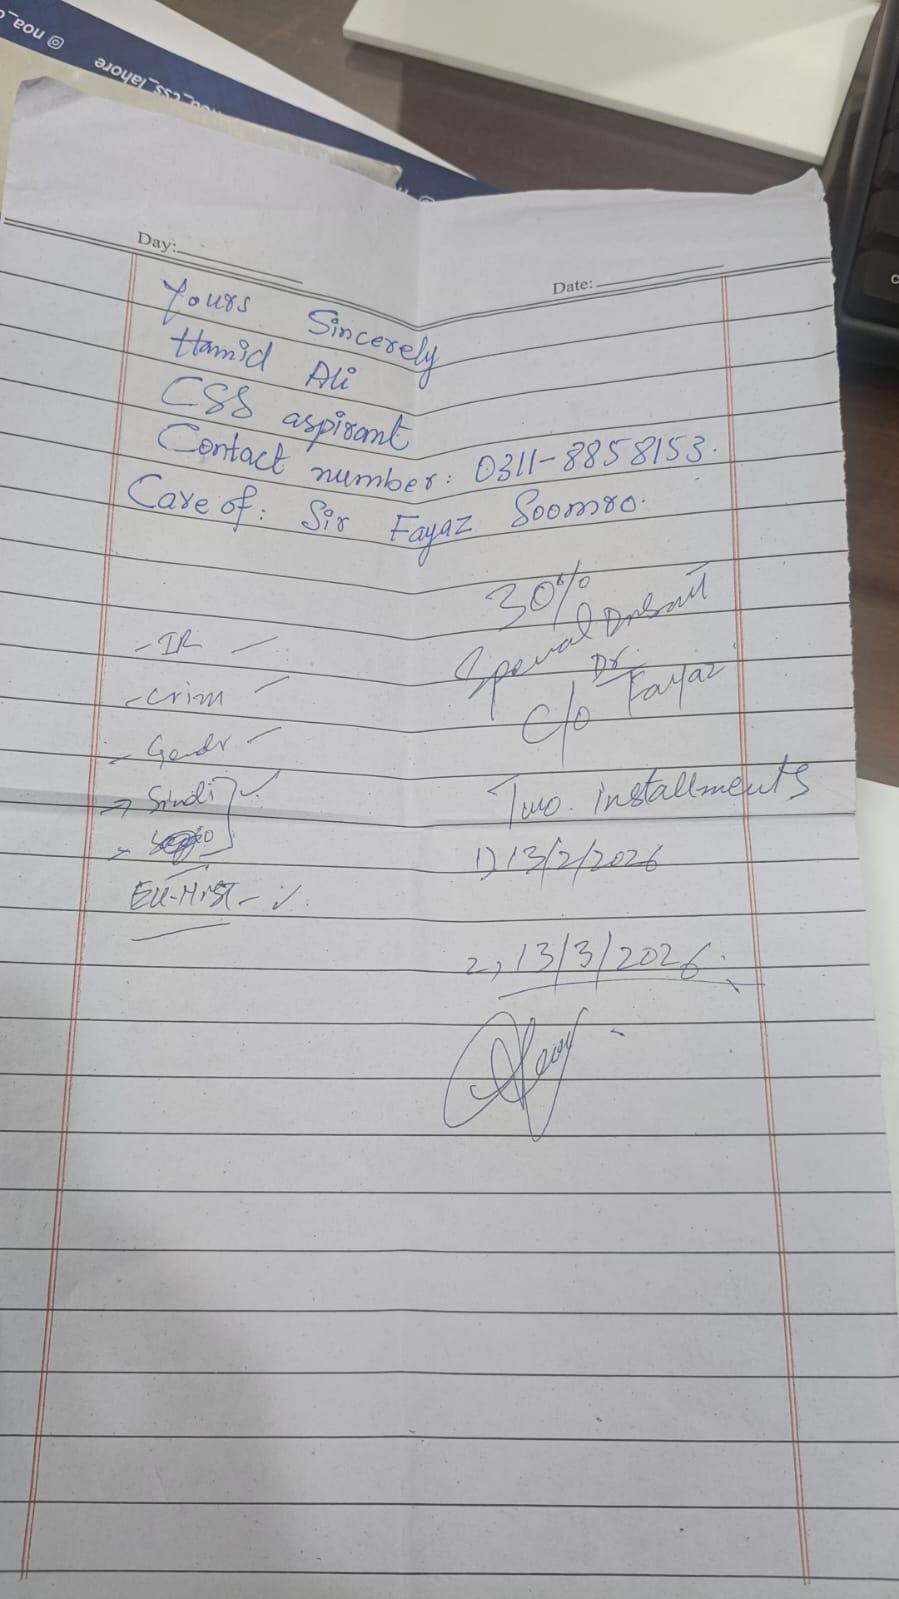 @ noa_c
noa_css_lahore
Day:
Date:
Yours Sincerely
Hamid Ali
CSS aspirant
Contact number: 0311-8858153.
Care of: Sir Fayaz Soomro.
30%
Special
Dr.
C/o Fayaz
- IR -
- Crim -
- Gendr -
→ Sindi
EU-Hist -
Two installments
1) 13/2/2026
2, 13/3/2026